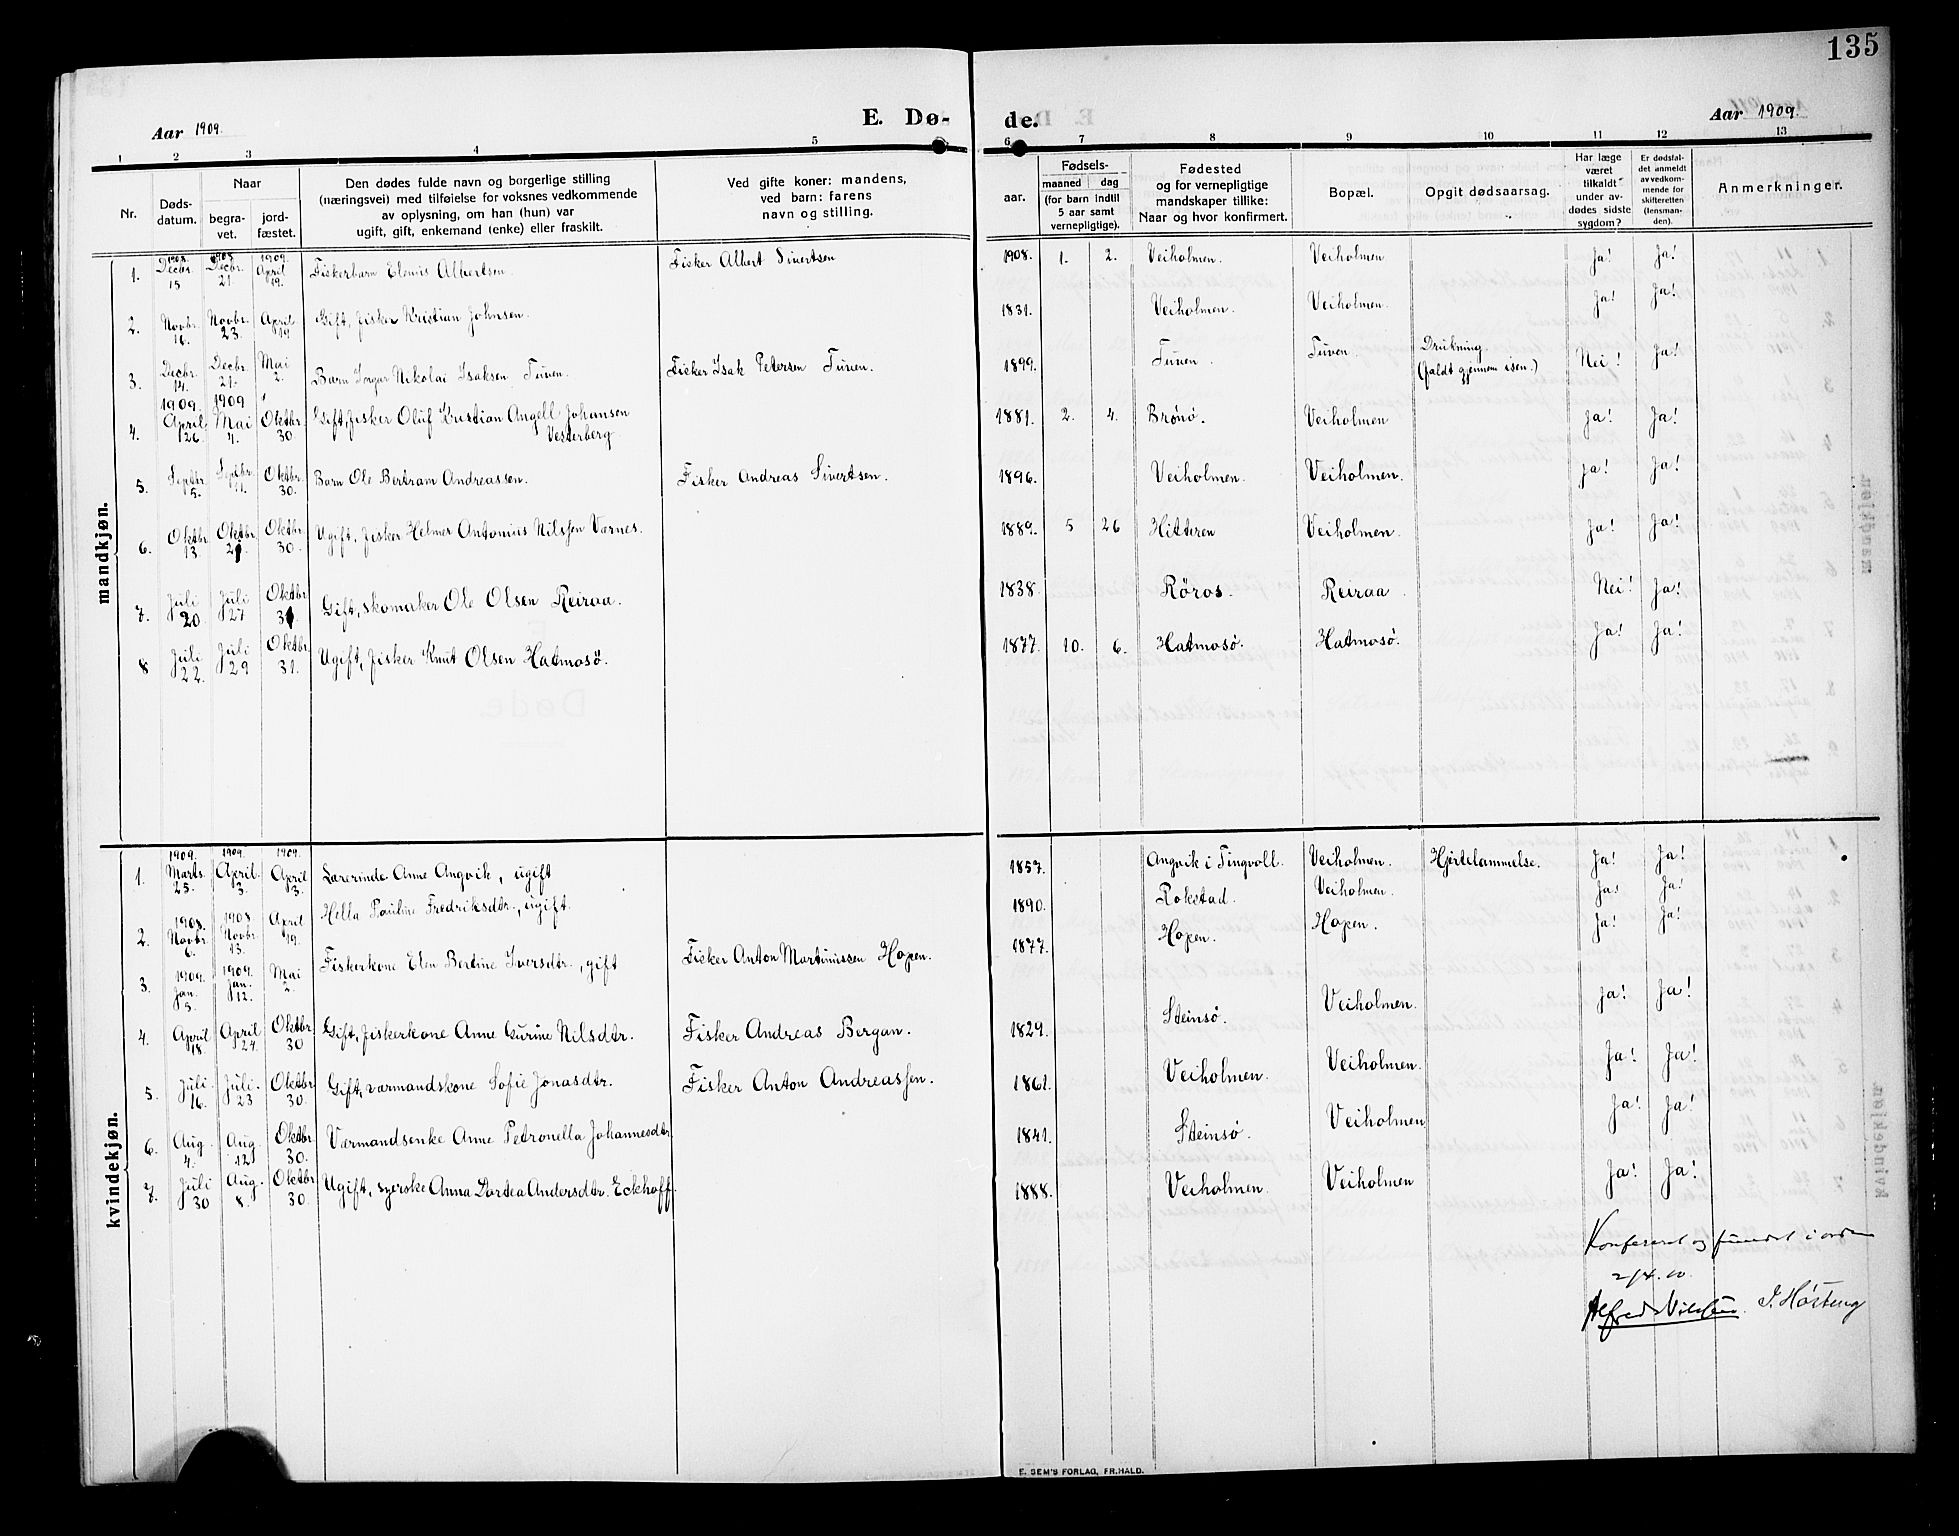 135
Aar 1909.
E. Dø-
de.
Aar 1909.
1 2 3 4 5 6 7 8 9 10 11 12 13
Nr.
Døds-
datum.
Naar
begra-
vet.
jord-
fæstet.
Den dødes fulde navn og borgerlige stilling
(næringsvei) med tilføielse for voksnes vedkommende
av oplysning, om han (hun) var
ugift, gift, enkemand (enke) eller fraskilt.
Ved gifte koner: mandens,
ved barn: farens
navn og stilling.
Fødsels-
aar.
maaned dag
(for barn indtil
5 aar samt
vernepligtige).
Fødested
og for vernepligtige
mandskaper tillike:
Naar og hvor konfirmert.
Bopæl.
Opgit dødsaarsag.
Har læge
været
tilkaldt
under av-
dødes sidste
sygdom?
Er dødsfal-
det anmeldt
av vedkom-
mende for
skifteretten
(lensman-
den).
Anmerkninger.
mandkjøn.
1. 1908. Decbr. 15 1908. Decbr. 21. 1909. April 19. Fiskerbarn Albertsen. Fisker Albert Sivertsen 1908. 1. 2. Veiholmen. Veiholmen Ja! Ja!
2. Novbr. 16. Novbr. 23. April 19. Gift, fisker Kristian Johnsen. 1831. Veiholmen. Veiholmen. Ja! Ja!
3. Decbr. 14. Decbr. 21. Mai 2. Barn Nikolai Isaksen Tuven. Fisker Isak Petersen Tuven. 1899. Tuven. Tuven. Drukning (faldt gjennem isen.) Nei! Ja!
4. 1909. April 26. 1909 Mai 4. Oktbr. 30. Gift, fisker Oluf Kristian Angell Johansen
Vesterberg 1881. 2. 4. Brønø. Veiholmen Ja! Ja!
5. Septbr. 5. Septbr. 11. Oktbr. 30. Barn Ole Bertram Andreassen. Fisker Andreas Sivertsen. 1896. Veiholmen. Veiholmen. Ja! Ja!
6. Oktbr. 13. Oktbr. Oktbr. 30. Ugift, fisker Helmer Antonius Nilssen Værnes. 1889. 5 26 Hitteren Veiholmen. Ja! Ja!
7. Juli 20 Juli 27 Oktbr. 31 Gift, skomaker Ole Olsen Reiraa. 1838. Røros. Reiraa. Nei! Ja!
8 Juli 22. Juli 29 Oktbr. 31. Ugift, fisker Knut Olsen Hatmosø. 1877. 10. 6. Hatmosø. Hatmosø. Ja! Ja!
kvindekjøn.
1. 1909. Marts. 25. 1909. April. 3. 1909. April 3. Lærerinde Anne Angvik, ugift 1857. Angvik i Tingvoll. Veiholmen. Hjertelammelse. Ja! Ja!
2. 1908. Novbr. 6. 1908. Novbr. 13. April 19. Hella Pauline Fredriksdtr., ugift. 1890. Rokstad. Veiholmen. Ja! Ja!
3. 1909. Jan. 5. 1909. Jan. 12. Mai 2. Fiskerkone Elen Bertine Iversdtr., gift Fisker Anton Martinussen Hopen. 1877. Hopen. Hopen. Ja! Ja!
4. April 18. April 24. Oktbr 30 Gift, fiskerkone Anne Gurine Nilsdtr. Fisker Andreas Bergan. 1829. Steinsø. Veiholmen. Ja! Ja!
5. Juli. 16. Juli. 23 Oktbr 30. Gift, værmandskone Sofie Jonasdtr. Fisker Anton Andreassen. 1861. Veiholmen. Veiholmen. Ja! Ja!
6. Aug. 4. Aug. 12 Oktbr 30. Værmandsenke Anne Petronella Johannesdtr. 1841. Steinsø. Veiholmen Ja! Ja!
7. Juli 30 Aug. 8. Oktbr 30. Ugift, syerske Anna Dortea Andersdtr. Eckhoff. 1888. Veiholmen. Veiholmen Ja! Ja!
Konferert og fundet i orden
2/4.10.
Alfred Nilssen. J. Høsteng
E. SEM'S FORLAG, FR.HALD.